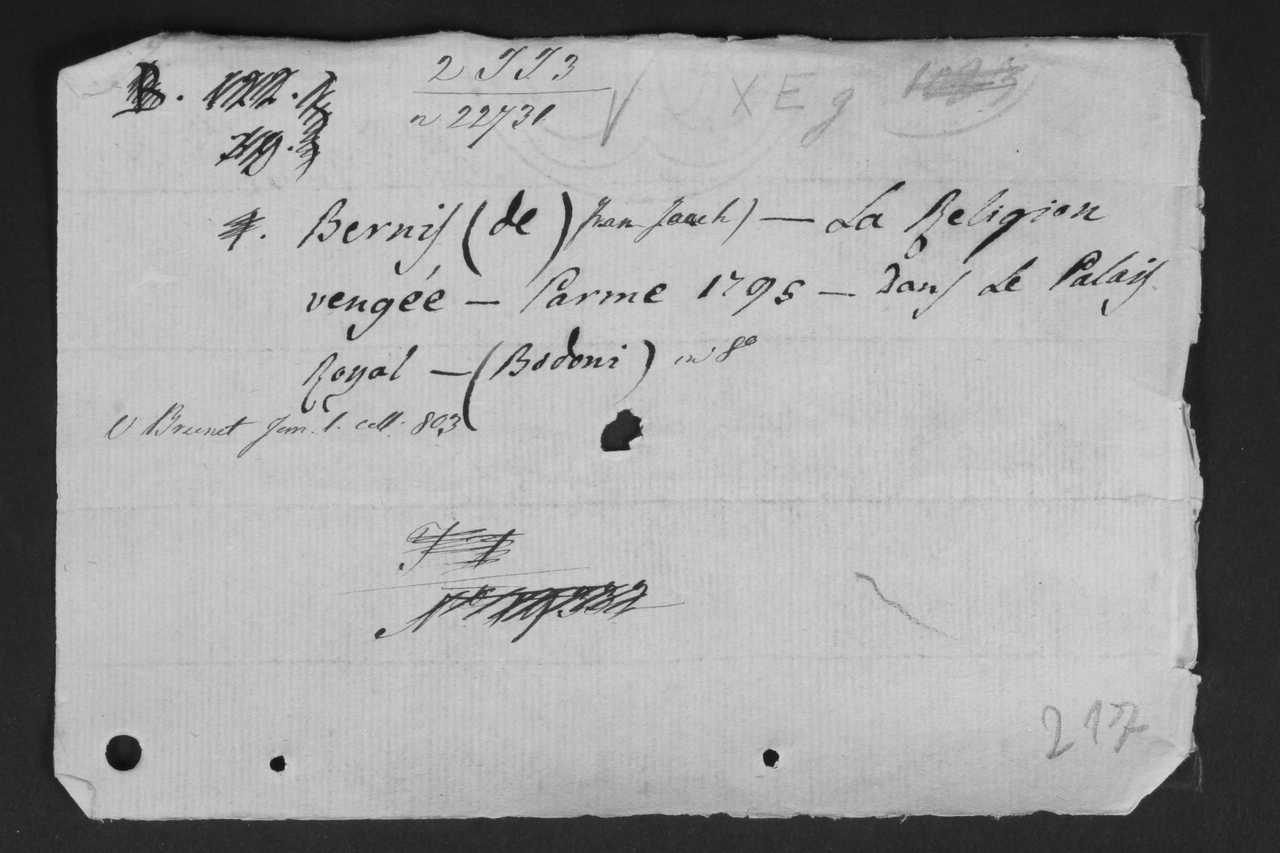 B. 2 J J 3 X E g
n 22731
Bernis (de) Jean Joach) — La Religion
vengée — Parme 1795 — Dans Le Palais
Royal — (Bodoni) in 8º
V Brunet Tom. 1. coll. 803
217